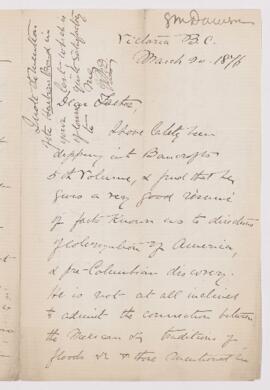 GM Dawson
Victoria B.C.
March 20. 1876
I wrote to mention
your which is
of course quite satisfactory
to me
GMD
Dear Father
I have lately been
dipping into Bancrofts
5th Volume, & find that he
gives a very good résumé
of facts known as to directions
of colonization of America,
& pre-Columbian discovery.
He is not at all inclined
to admit the connection between
the Mexican &c traditions of
floods &c & those mentioned in